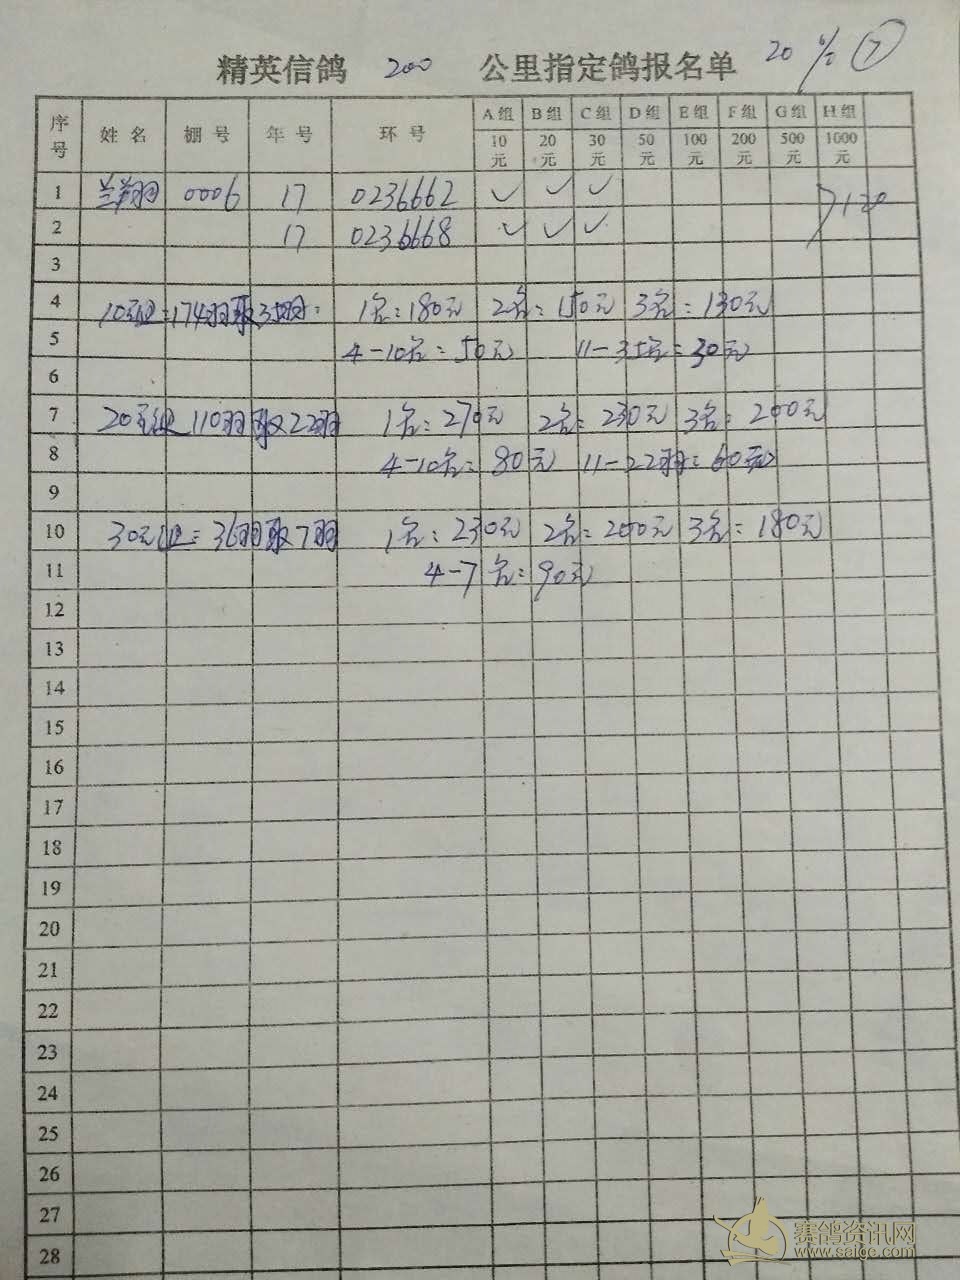 精英信鸽 200 公里指定鸽报名单 20% ⑦
序号 姓名 棚号 年号 环号 A组 B组 C组 D组 E组 F组 G组 H组
10元 20元 30元 50元 100元 200元 500元 1000元
1 兰翔 0006 17 0236662 ✓ ✓ ✓ 120
2 17 0236668 ✓ ✓ ✓
3
4 10元组:174羽取35羽: 1名:180元 2名:150元 3名:130元
5 4-10名:50元 11-35名:30元
6
7 20元组110羽取22羽 1名:270元 2名:230元 3名:200元
8 4-10名:80元 11-22羽:60元
9
10 30元组:36羽取7羽 1名:230元 2名:200元 3名:180元
11 4-7名:90元
12
13
14
15
16
17
18
19
20
21
22
23
24
25
26
27
28
赛鸽资讯网
www.saige.com